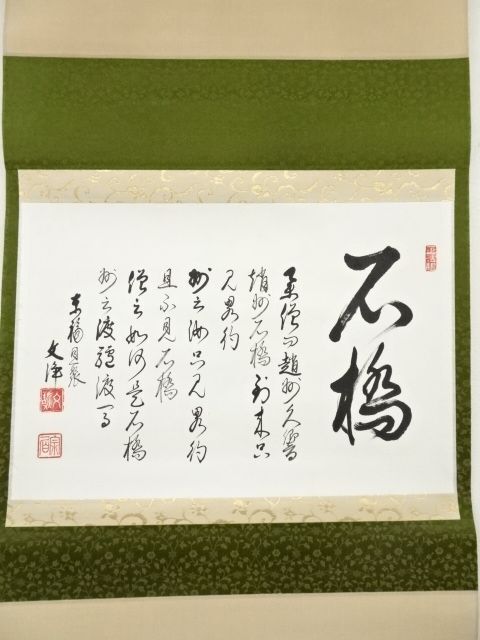 石橋
某僧問趙州久響
趙州石橋到来只
見畧彴
州云汝只見畧彴
且不見石橋
僧云如何是石橋
州云渡驢渡馬
東福